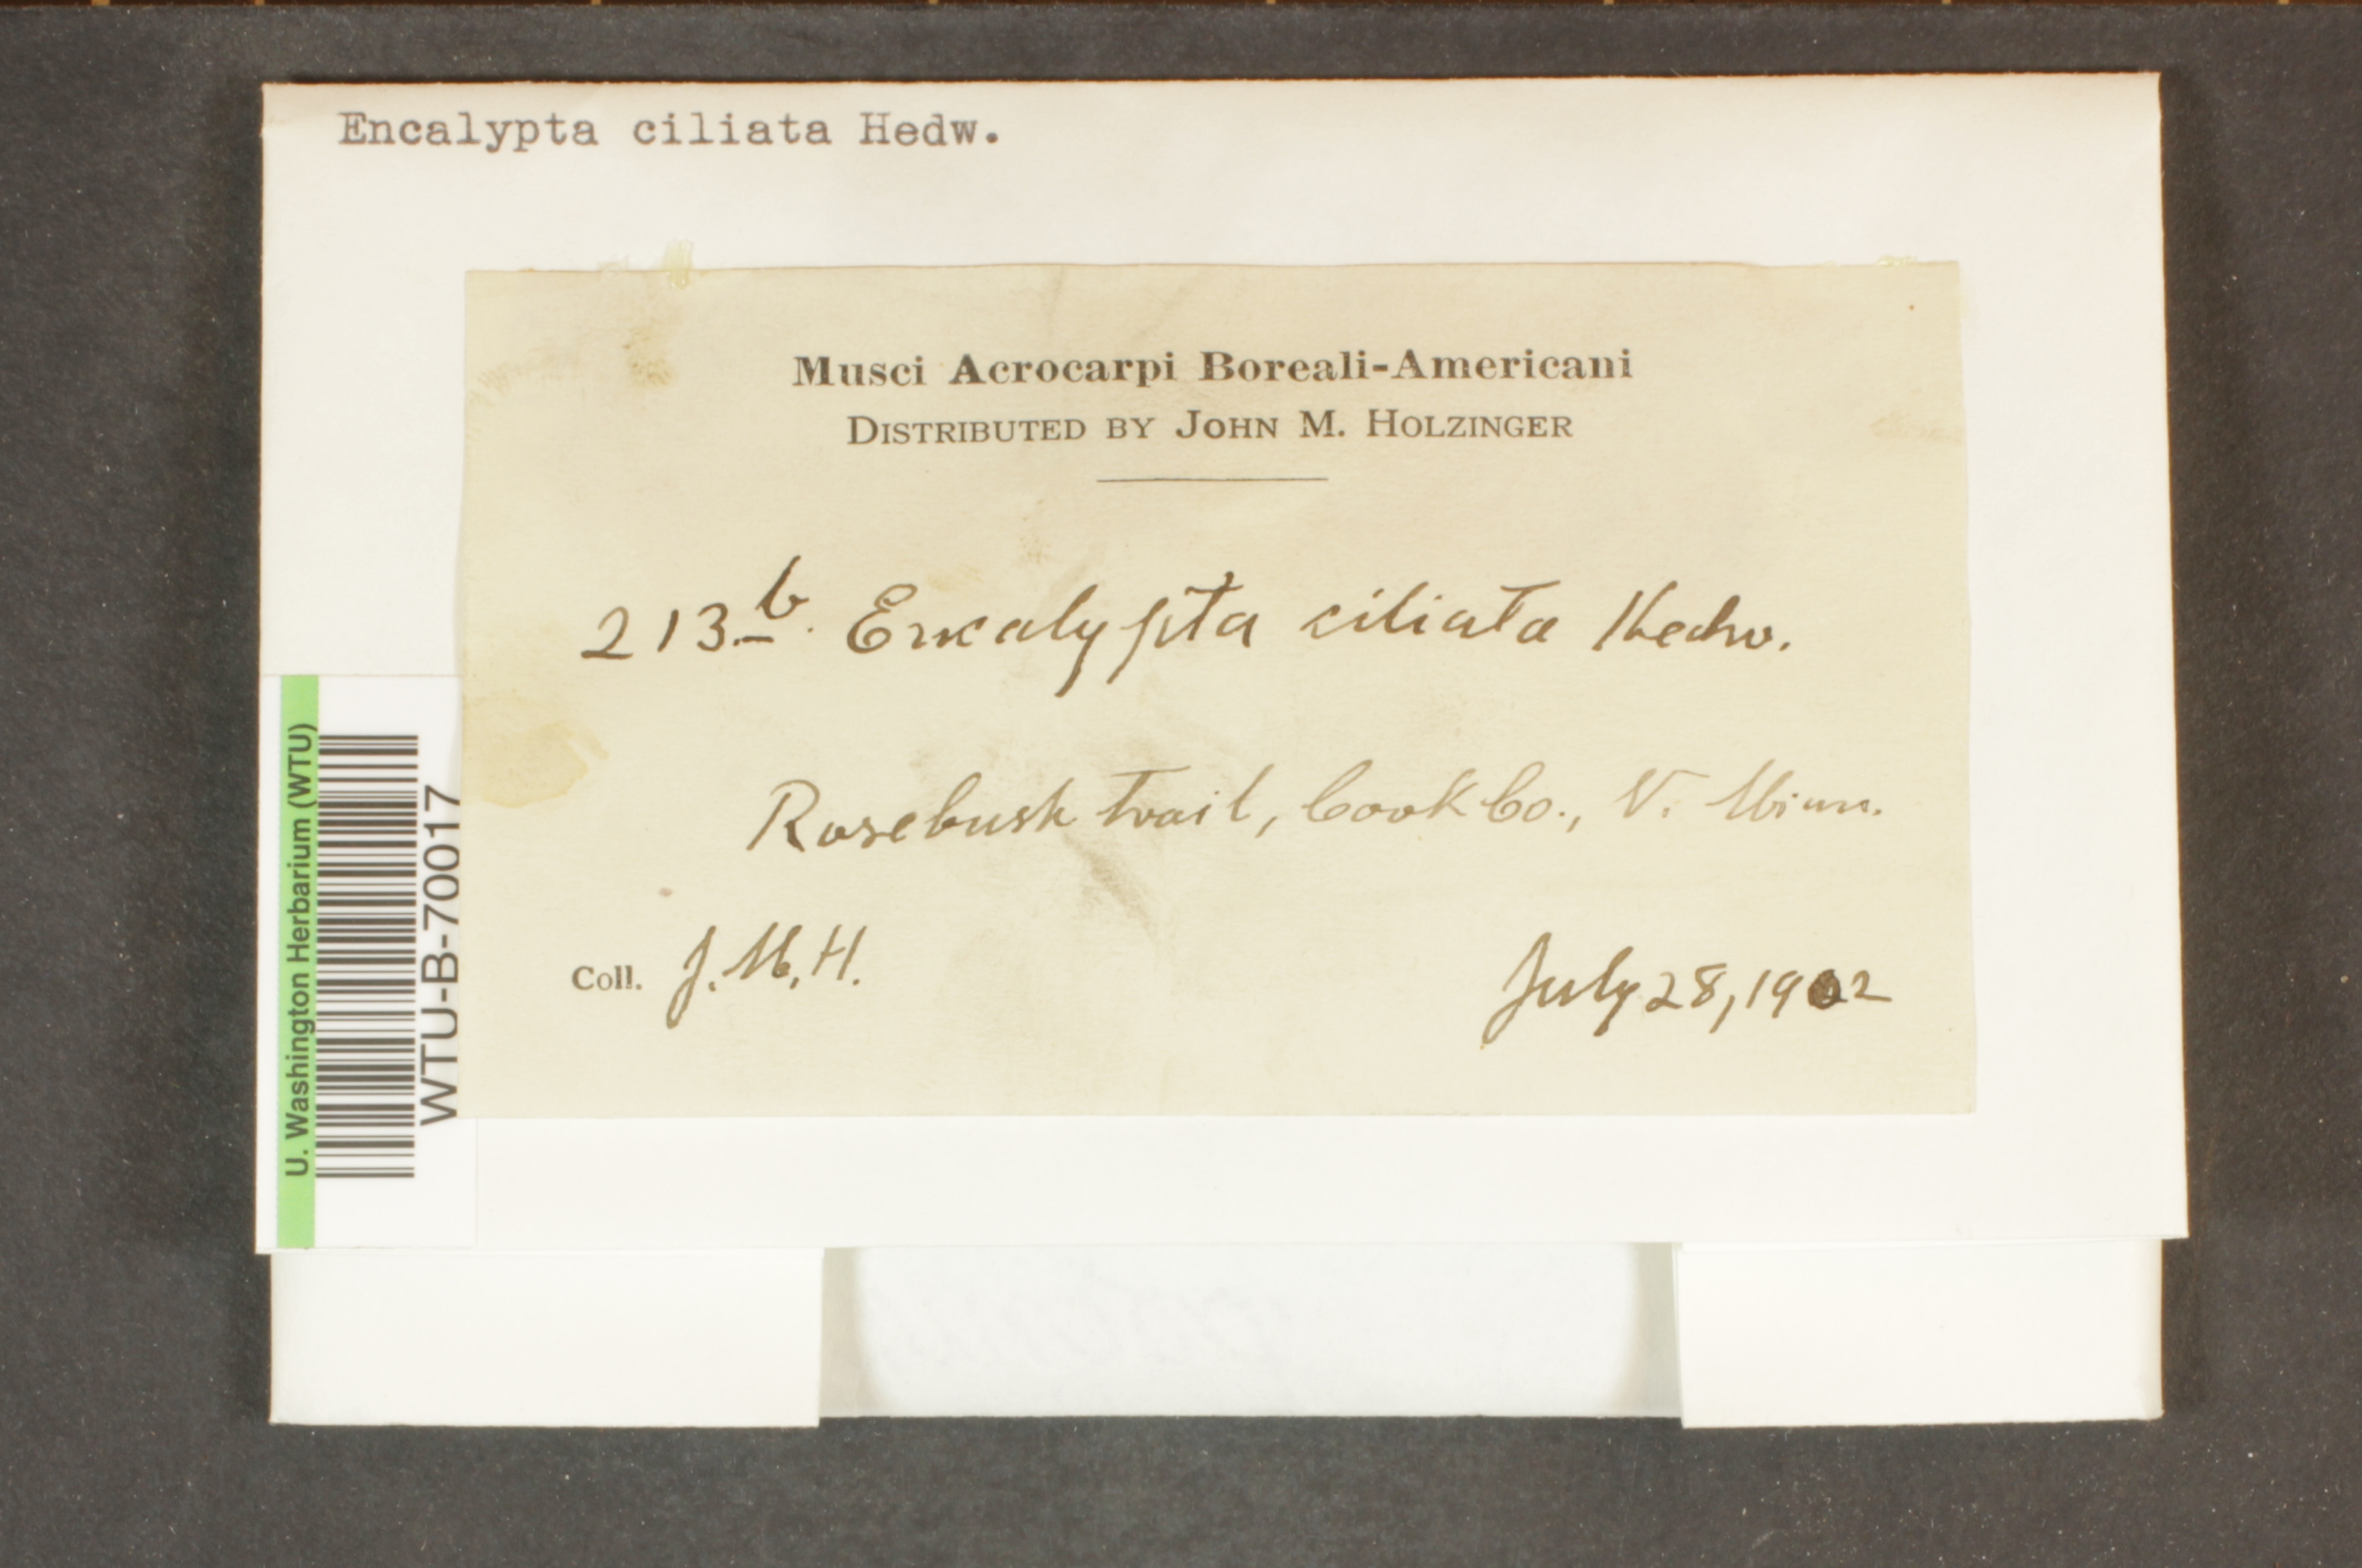 Encalypta ciliata Hedw.
Musci Acrocarpi Boreali-Americani
DISTRIBUTED BY JOHN M. HOLZINGER
213.b. Encalypta ciliata Hedw.
Rosebush trail, Cook Co., N. Minn.
Coll. J. M. H.
July 28, 1902
U. Washington Herbarium (WTU)
WTU-B-70017